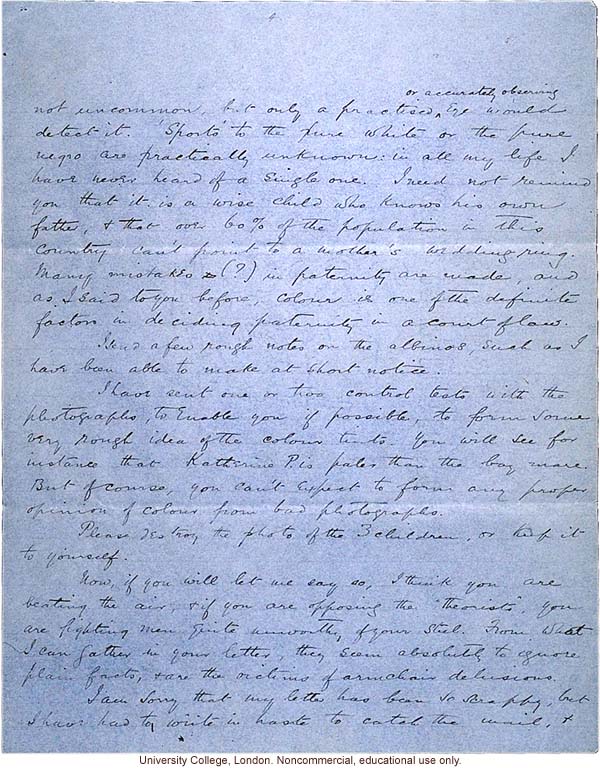 4
or accurately observing
not uncommon, but only a practised ^ Eye would
detect it. 'Sports' to the pure white or the pure
negro are practically unknown: in all my life I
have never heard of a single one. I need not remind
you that it is a wise child who knows his own
father, & that over 60% of the population in this
country can't point to a mother's wedding ring.
Many mistakes (?) in paternity are made, and
as I said to you before, colour is one of the definite
factors in deciding paternity in a court of law.
I send a few rough notes on the albinos, such as I
have been able to make at short notice.
I have sent one or two control tests with the
photographs, to Enable you if possible, to form some
very rough idea of the colour tints. You will see for
instance that Katherine P. is paler than the bay mare.
But of course, you can't expect to form any proper
opinion of colour from bad photographs.
Please destroy the photo of the 3 children, or keep it
to yourself.
Now, if you will let me say so, I think you are
beating the air, & if you are opposing the "theorists", you
are fighting men quite unworthy of your steel. From what
I can gather in your letter, they seem absolutely to ignore
plain facts, & are the victims of armchair delusions.
I am sorry that my letter has been so scrappy, but
I have had to write in haste to catch the mail, &
University College, London. Noncommercial, educational use only.